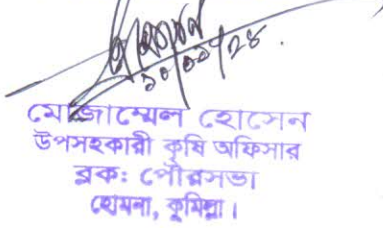 মোজাম্মেল হোসেন
উপসহকারী কৃষি অফিসার
ব্লক: পৌরসভা
হোমনা, কুমিল্লা।